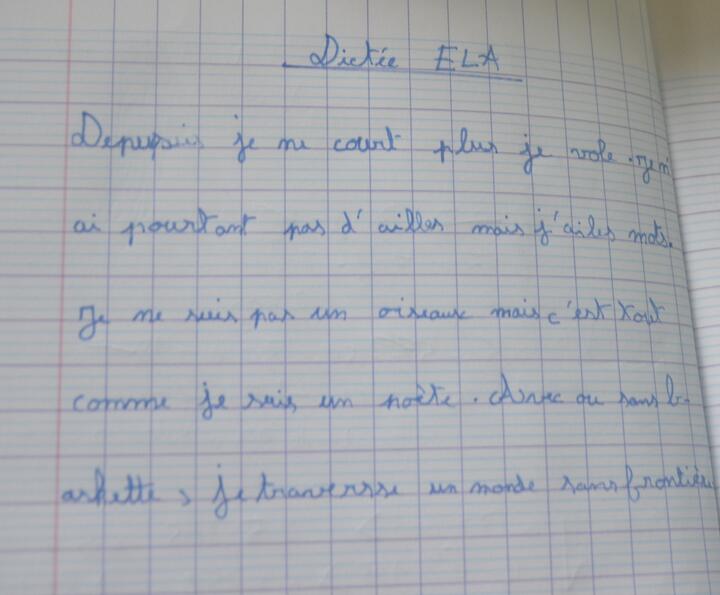 Dictée ELA
Depuis je ne court plus je vole. je n
ai pourtant pas d'ailles mais j'ai les mots.
Je ne suis pas un oiseaux mais c'est tout
comme je suis un poète. Avec ou sans b-
askette, je traversse un monde sans frontière